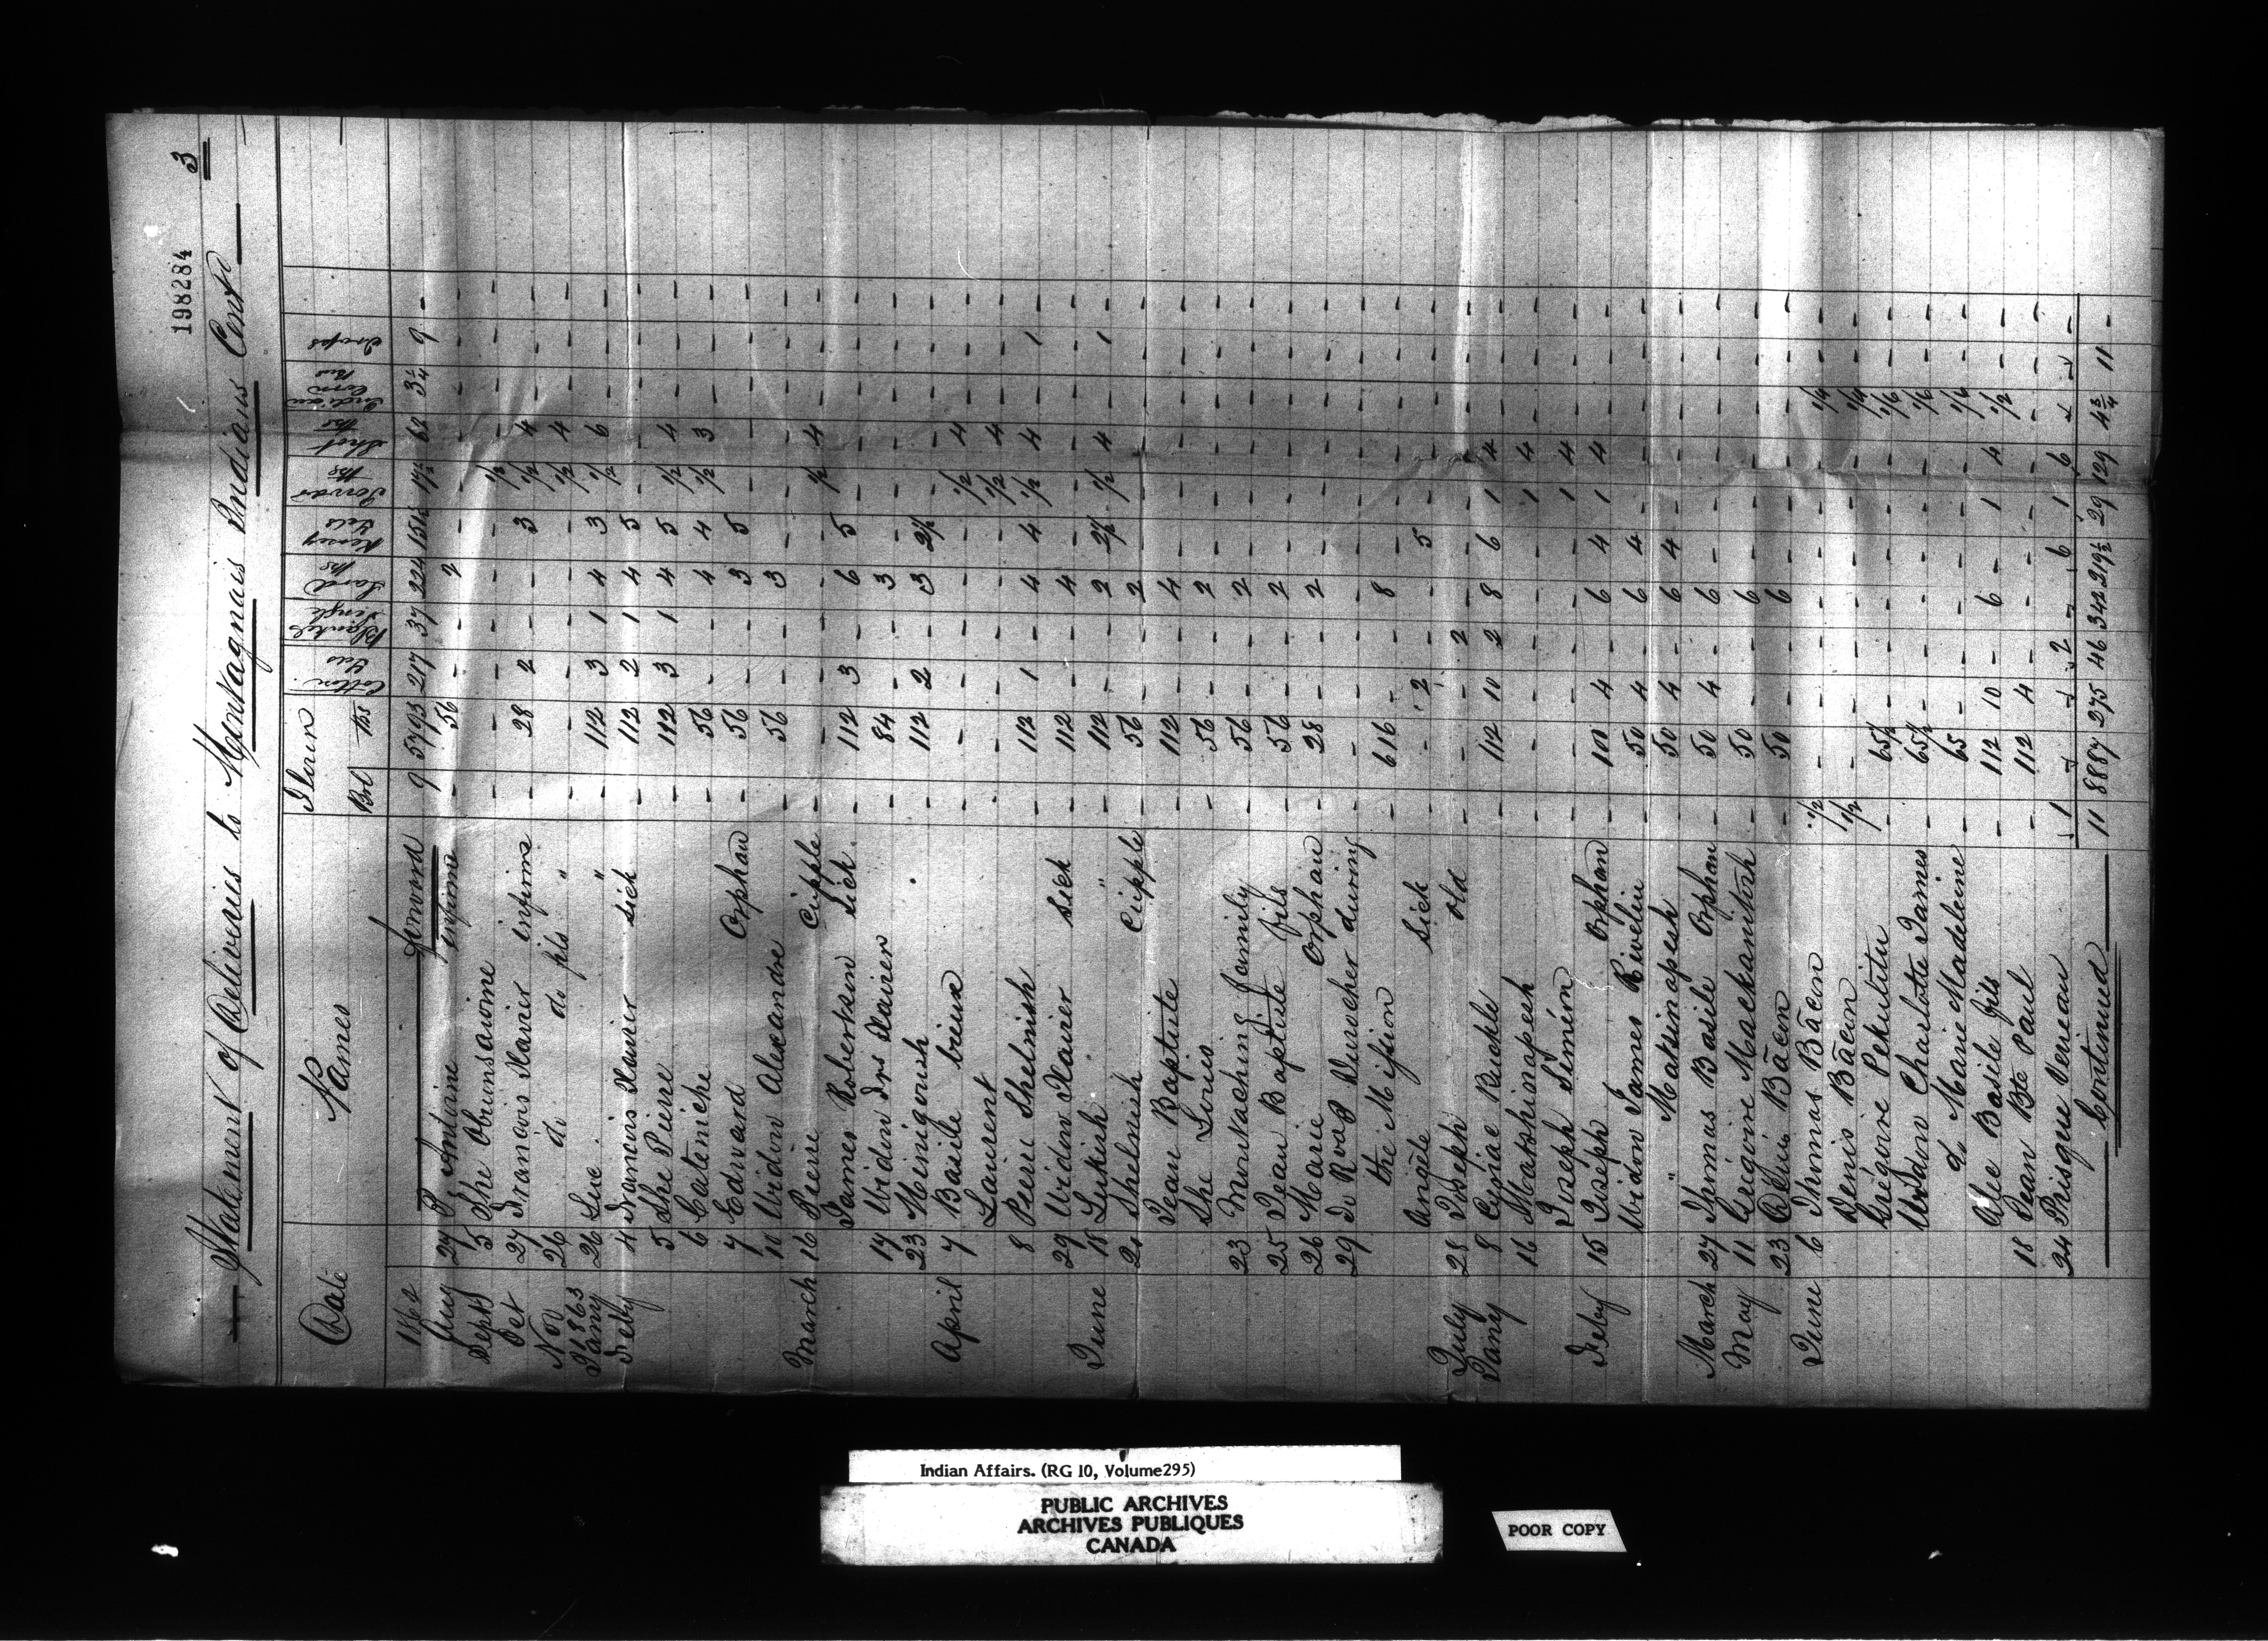 198284
3
Statement of Deliveries to Montagnais Indians Contd
Date Names Flour Cotton Blankets Lard Kersey Powder Shot Indian Traps
Brl lbs Yds Single lbs Yds lbs lbs Corn Bus
1862 forward 9 5793 217 37 224 151½ 17½ 62 3¼ 9 -
Aug 27 P. Antoine infirme - 56 - - 2 - - - - - -
Septb 5 She
Oct 27 Francois Xavier infirme - 28 2 - - 3 ½ 4 - - -
Nov 26 do do fils " - - - - - - ½ 4 - - -
1863
Jany 26 Luc " - 112 3 1 4 3 ½ 6 - - -
Feby 4 Francois Xavier Sick - 112 2 1 4 5 - - - - -
5 She Pierre - 112 3 1 4 5 ½ 4 - - -
6 Catiniche - 56 - - 4 4 ½ 3 - - -
7 Edward Orphan - 56 - - 3 5 - - - - -
10 Widow Alexandre - 56 - - 3 - - - - - -
March 16 Pierre Cripple - - - - - - ½ 4 - - -
James Robertson Sick - 112 3 - 6 5 - - - - -
17 Widow Frs Xavier - 84 - - 3 - - - - - -
23 Meinigouish - 112 2 - 3 2½ - - - - -
April 7 Basile vieux - - - - - - ½ 4 - - -
Laurent - - - - - - ½ 4 - - -
8 Pierre Shelnish - 112 1 - 4 4 ½ 4 - 1 -
29 Widow Xavier Sick - 112 - - 4 - - - - - -
June 18 Lukish " - 112 - - 2 2½ ½ 4 - 1 -
21 Shelnish Cripple - 56 - - 2 - - - - - -
Jean Baptiste - 112 - - 4 - - - - - -
She Louis - 56 - - 2 - - - - - -
23 family - 56 - - 2 - - - - - -
25 Jean Baptiste fils - 56 - - 2 - - - - - -
26 Marie Orphan - 28 - - 2 - - - - - -
29 To Revd Durocher during - - - - - - - - - - -
the Mission - 616 - - 8 - - - - - -
Angèle Sick - - 2 - - 5 - - - - -
July 28 Joseph old - - - 2 - - - - - - -
Jany 8 Cyriac Buckle - 112 10 2 8 6 1 4 - - -
16 Matshinapesh - - - - - - 1 4 - - -
Joseph Siméon - - - - - - 1 4 - - -
Feby 15 Joseph Orphan - 100 4 - 6 4 1 4 - - -
Widow James Rivelin - 50 4 - 6 4 - - - - -
" Matsinapesh - 50 4 - 6 4 - - - - -
March 27 Thomas Basile Orphan - 50 4 - 6 - - - - - -
May 11 Grégoire Mackanitosh - 50 - - 6 - - - - - -
23 Denis Bäcin - 50 - - 6 - - - - - -
June 6 Thomas Bäcin ½ - - - - - - - ¼ - -
Denis Bäcin ½ - - - - - - - ¼ - -
Grégoire Pekutitu - 65½ - - - - - - 1/6 - -
Widow Charlotte James - 65½ - - - - - - 1/6 - -
d Marie Madeleine - 65 - - - - - - 1/6 - -
Abe Basile fils - 112 10 - 6 - 1 4 ½ - -
18 Jean Bte Paul - 112 4 - - - - - - - -
24 Prisque Verreau 1 - - 2 - 6 1 6 - - -
Continued 11 8887 275 46 342 219½ 29 129 4¾ 11 -
Indian Affairs. (RG 10, Volume 295)
PUBLIC ARCHIVES
ARCHIVES PUBLIQUES
CANADA
POOR COPY